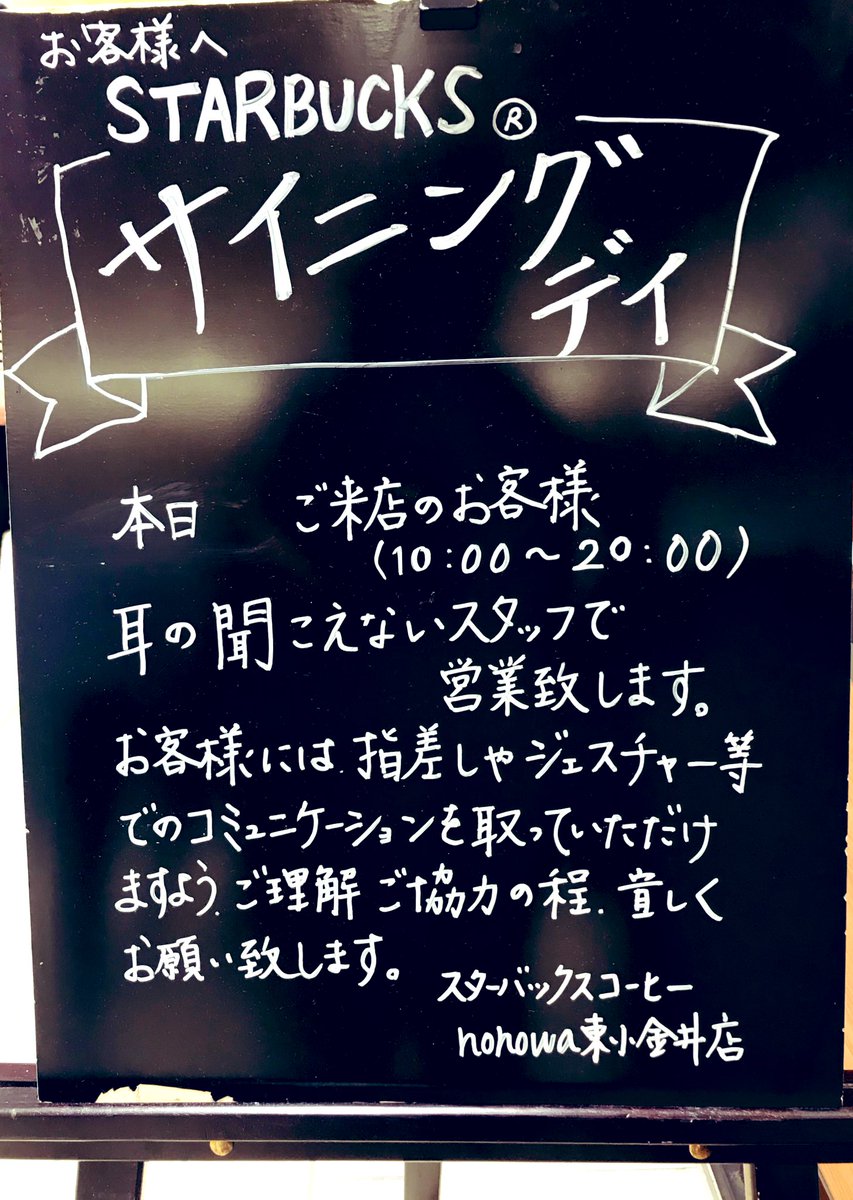 お客様へ
STARBUCKS®
サイニング
デイ
本日 ご来店のお客様
(10:00～20:00)
耳の聞こえないスタッフで
営業致します。
お客様には、指差しやジェスチャー等
でのコミュニケーションを取っていただけ
ますよう、ご理解ご協力の程、宜しく
お願い致します。
スターバックスコーヒー
nonowa東小金井店